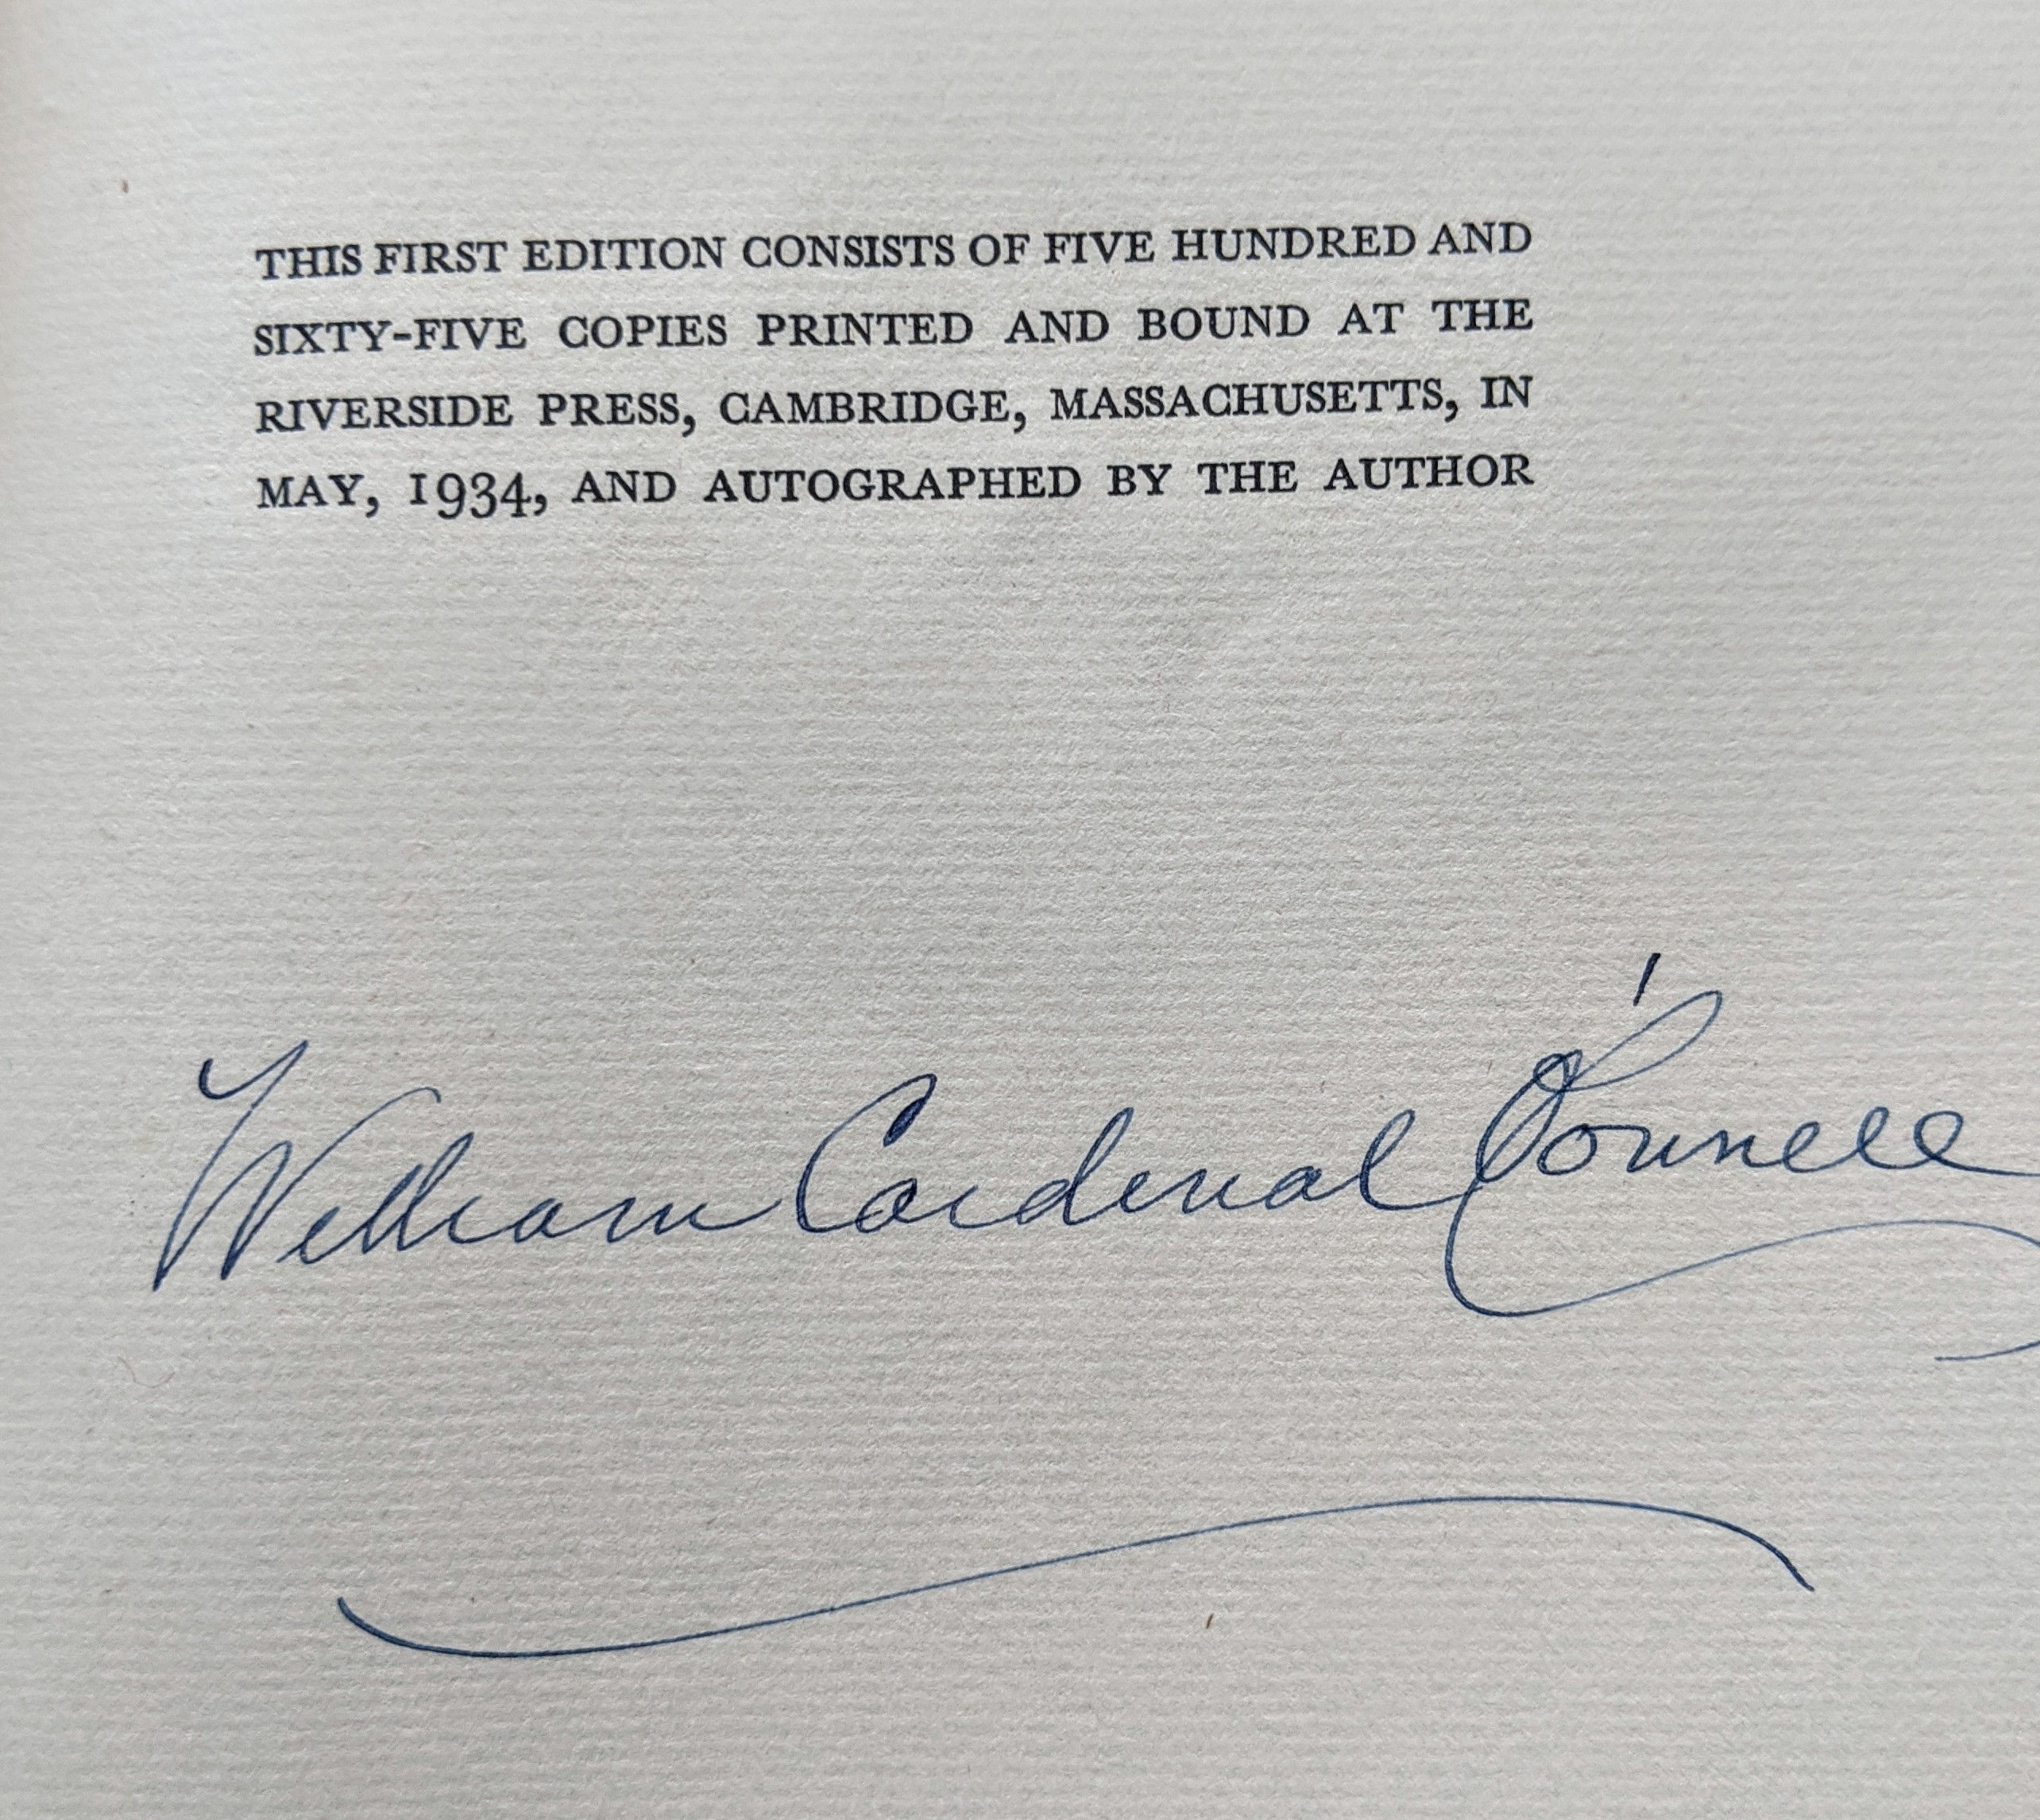 THIS FIRST EDITION CONSISTS OF FIVE HUNDRED AND
SIXTY-FIVE COPIES PRINTED AND BOUND AT THE
RIVERSIDE PRESS, CAMBRIDGE, MASSACHUSETTS, IN
MAY, 1934, AND AUTOGRAPHED BY THE AUTHOR
William Cardinal O'Connell